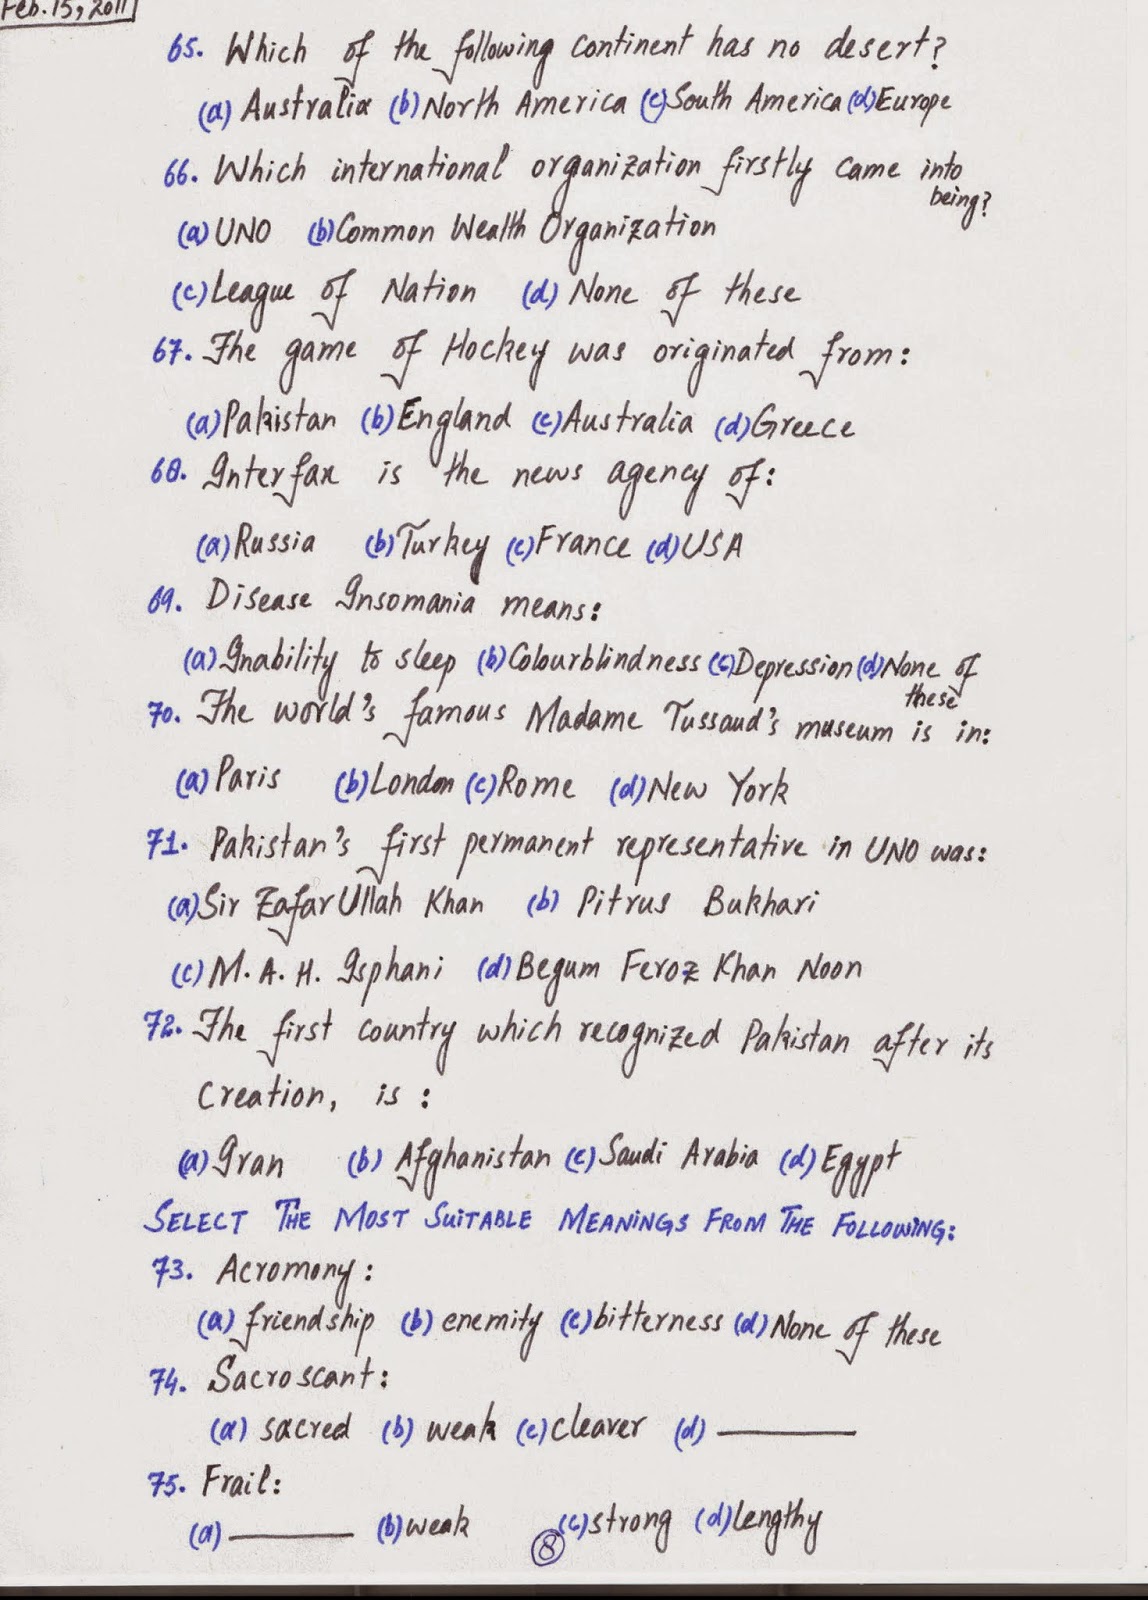 Feb. 15, 2011
65. Which of the following continent has no desert?
(a) Australia (b) North America (c) South America (d) Europe
66. Which international organization firstly came into being?
(a) UNO (b) Common Wealth Organization
(c) League of Nation (d) None of these
67. The game of Hockey was originated from:
(a) Pakistan (b) England (c) Australia (d) Greece
68. Interfax is the news agency of:
(a) Russia (b) Turkey (c) France (d) USA
69. Disease Insomania means:
(a) Inability to sleep (b) Colourblindness (c) Depression (d) None of these
70. The world's famous Madame Tussaud's museum is in:
(a) Paris (b) London (c) Rome (d) New York
71. Pakistan's first permanent representative in UNO was:
(a) Sir Zafar Ullah Khan (b) Pitrus Bukhari
(c) M. A. H. Isphani (d) Begum Feroz Khan Noon
72. The first country which recognized Pakistan after its
Creation, is :
(a) Iran (b) Afghanistan (c) Saudi Arabia (d) Egypt
SELECT THE MOST SUITABLE MEANINGS FROM THE FOLLOWING:
73. Acromony :
(a) friendship (b) enemity (c) bitterness (d) None of these
74. Sacroscant :
(a) sacred (b) weak (c) cleaver (d) ______
75. Frail :
(a) ______ (b) weak (c) strong (d) lengthy
8